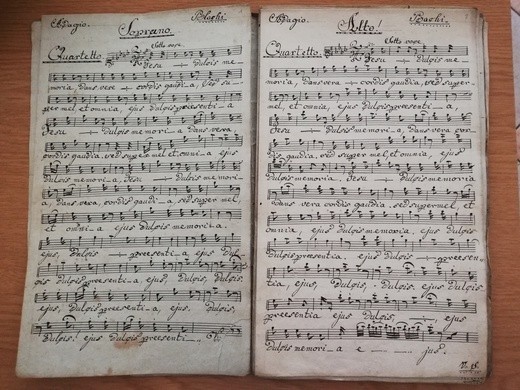 Adagio.
Soprano.
Quartetto.
Sotto voce
Jesu dulpis me-
moria, dans vera cordis gaudi-a, sed su-
per mel, et omnia, ejus dulpis præsenti-a,
Jesu dulpis memori-a dans vera
cordis gaudia, sed super mel, et omni-a, ejus
dulpis memori-a, Jesu dulpis memori-
a, dans vera, cordis gaudi-a, sed super mel,
et omni-a ejus dulpis memoria.
ejus, dulpis præsenti-a, ejus dul-
pis dulpis præsenti-a, ejus, dulpis, dulpis,
ejus, dulpis præsenti-a, ejus, dulpis.
dulpis! ejus dulpis præsenti-
Adagio.
Alto!
Quartetto.
Sotto voce
Jesu dulpis me-
moria, dans vera cordis gaudia, sed super
mel, et omnia, ejus dulpis præsenti-a,
Jesu dulpis memori-a, dans vera cor-
dis gaudia, sed super mel, et omnia, ejus
dulpis memori-a, Jesu dulpis memoria
dans vera cordis gaudia, sed super mel, et
omnia, ejus dulpis memoria, ejus dulpis præsen-
tia, ejus, dulpis, dulpis ejus dulpis
præsentia ejus, dulpis, ejus
dulpis memori-a e jus.